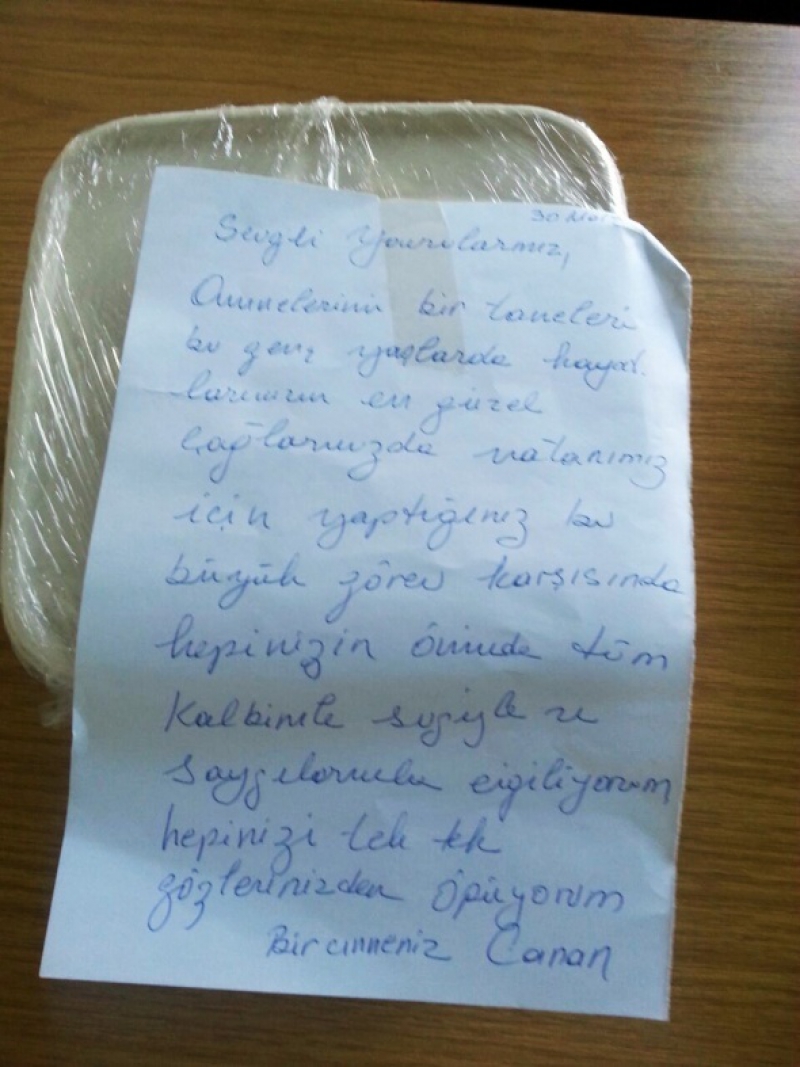 30
Sevgli Yavrularımız,
Annelerinin bir taneleri
bu genç yaşlarda hayat
larınızın en güzel
çağlarınızda vatanımız
için yaptığınız bu
büyük görev karşısında
hepinizin önünde tüm
kalbimle sevgiyle ve
saygılarımla eigiliyorum
hepinizi tek tek
gözlerinizden öpüyorum
Bir anneniz Canan